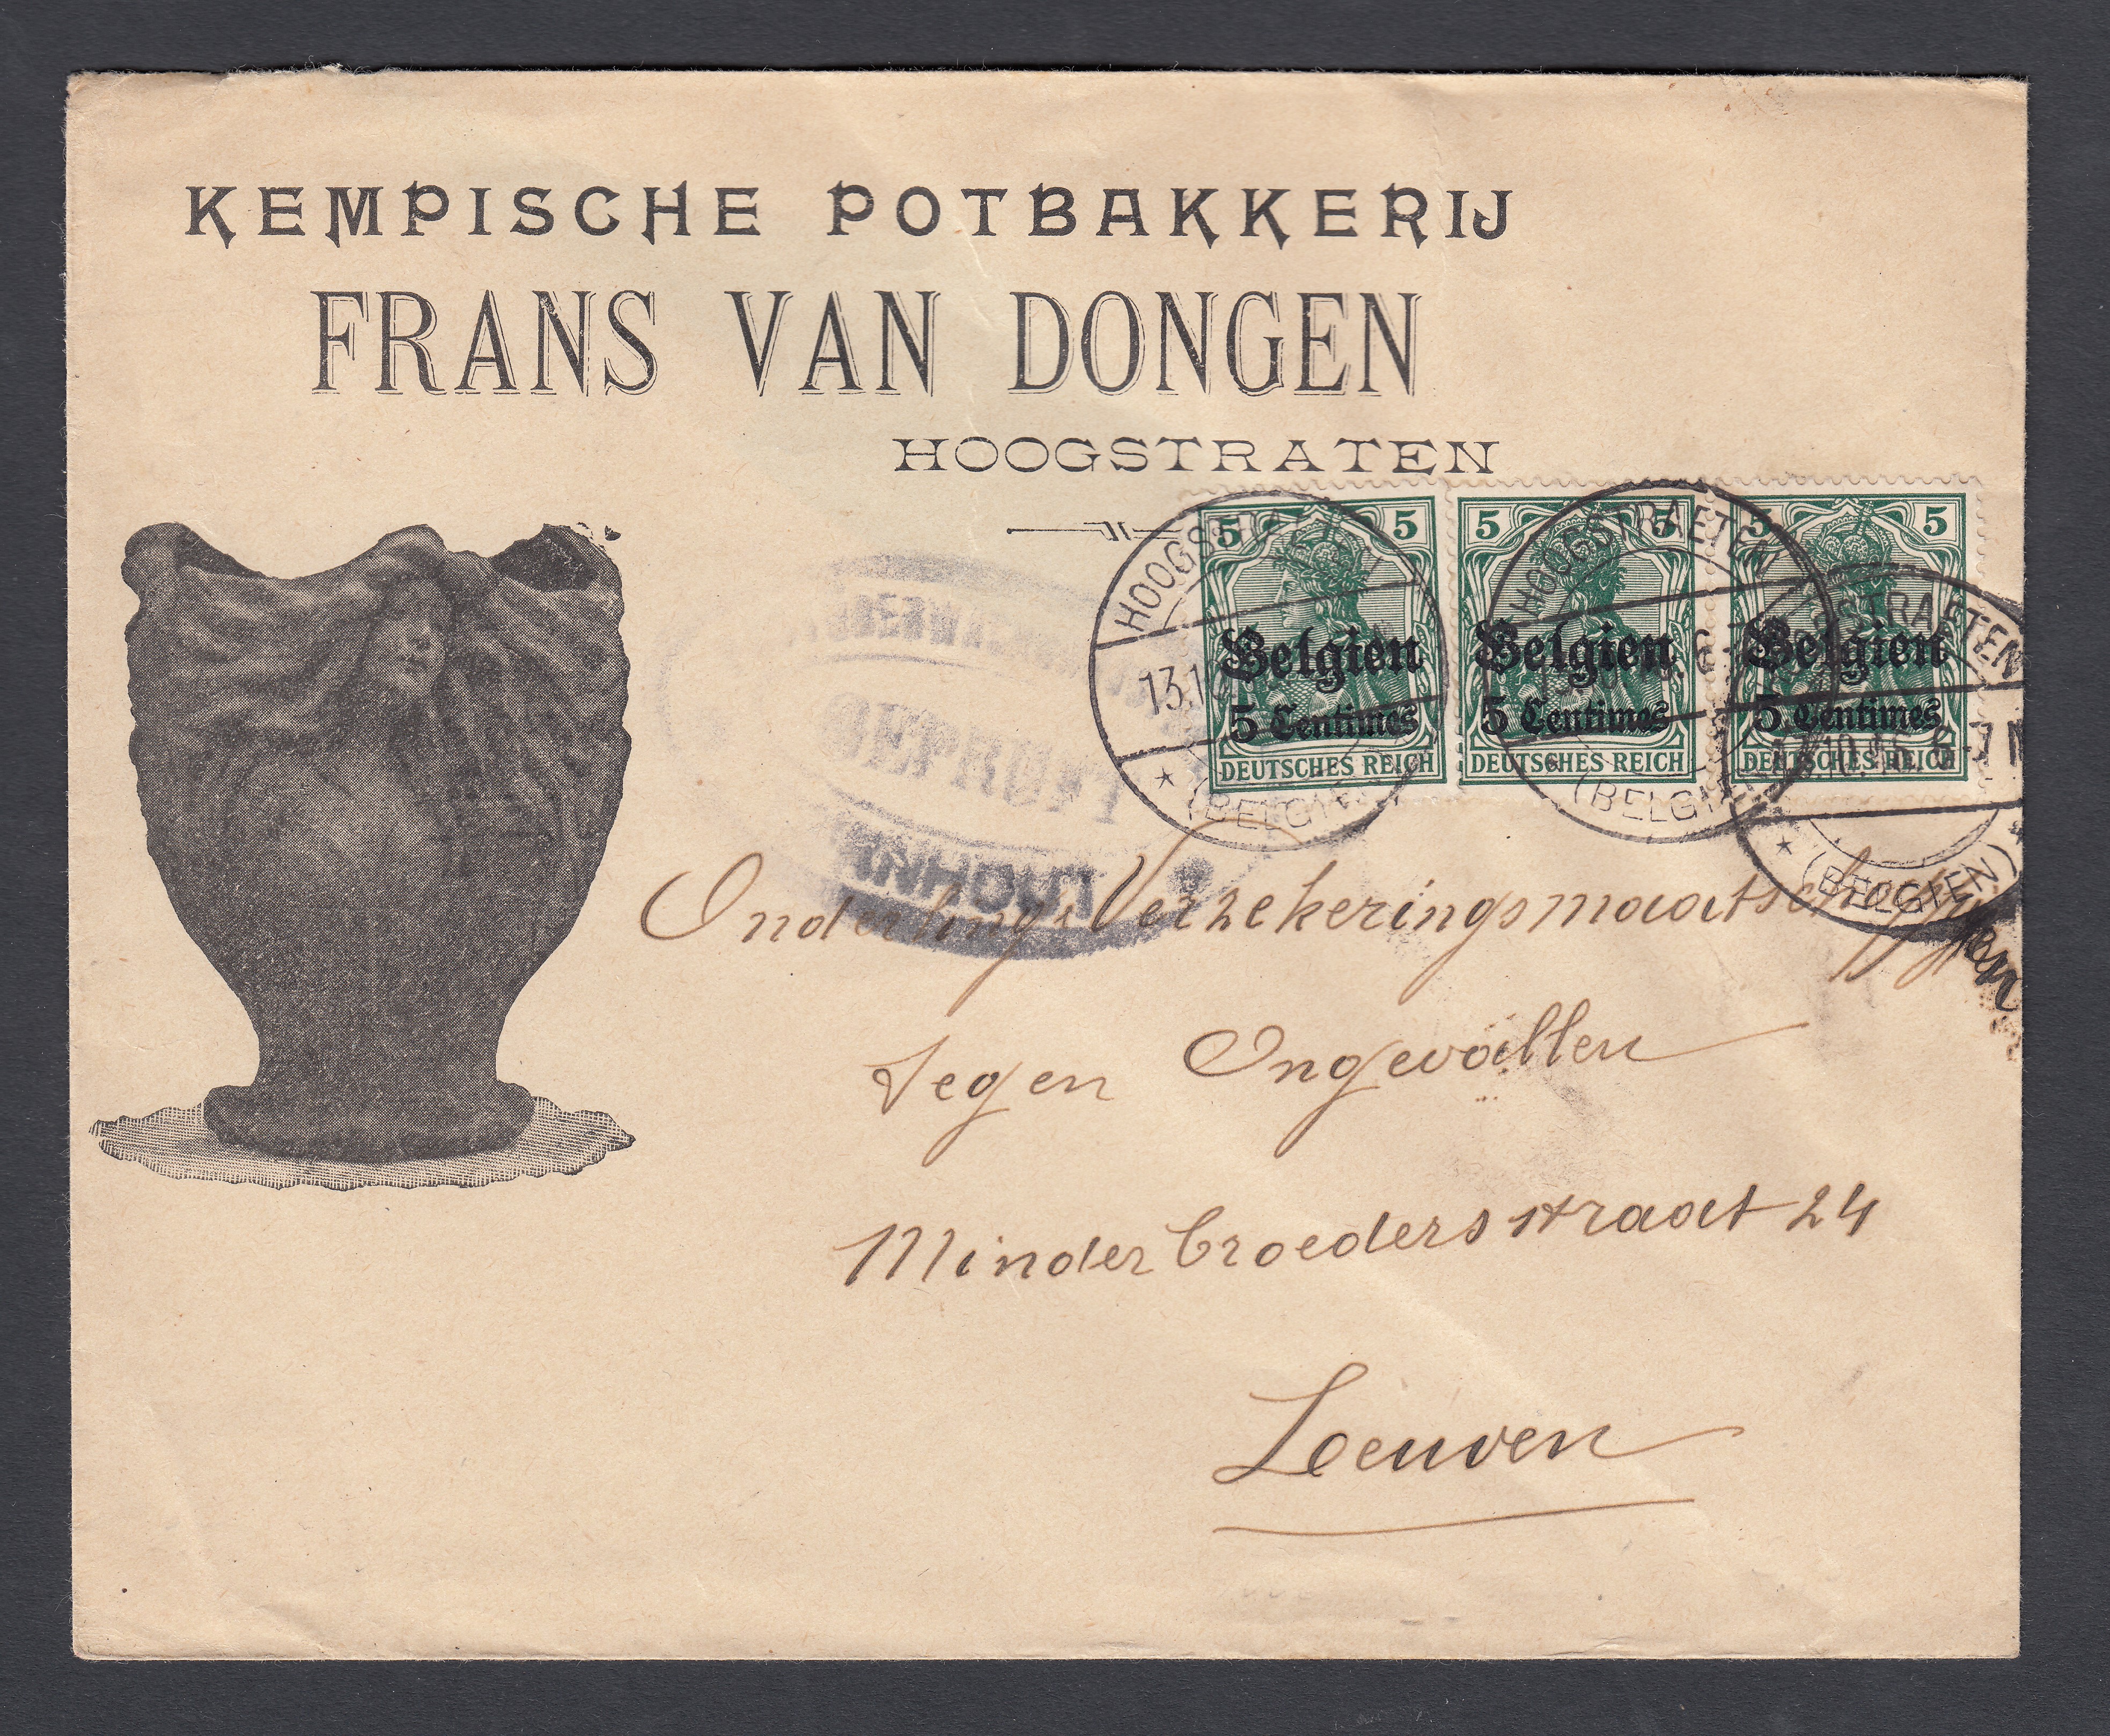 KEMPISCHE POTBAKKERIJ
FRANS VAN DONGEN
HOOGSTRATEN
5 5
Belgien
5 Centimes
DEUTSCHES REICH
5 5
Belgien
5 Centimes
DEUTSCHES REICH
5 5
Belgien
5 Centimes
DEUTSCHES REICH
HOOGSTRAETEN
(BELGIEN)
HOOGSTRAETEN
(BELGIEN)
STRAETEN
6-7 N
(BELGIEN)
GEPRÜFT
Onderlinge Verzekeringsmaatschappij
tegen Ongevallen
Minderbroedersstraat 24
Leuven